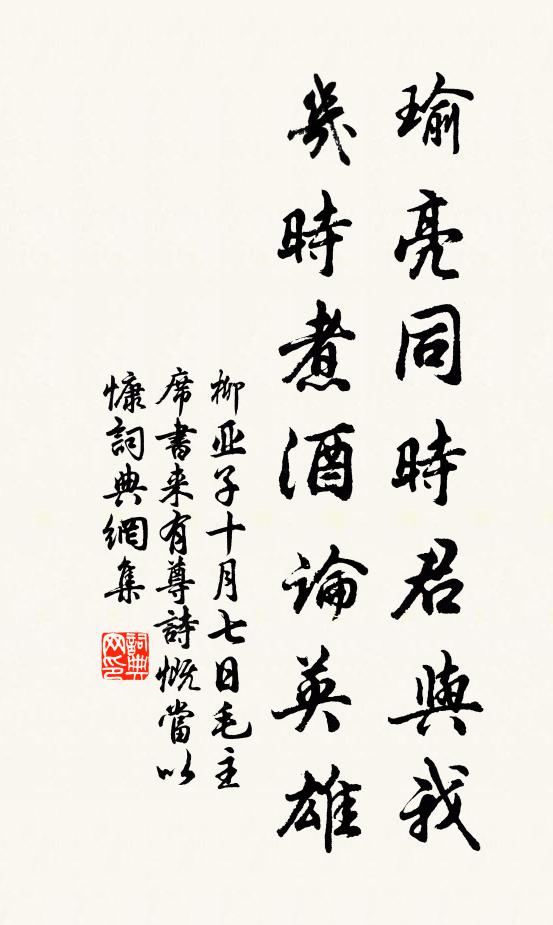 瑜亮同時君與我
幾時煮酒論英雄
柳亚子十月七日毛主
席書来有尊詩慨當以
慷詞典網集
詞典网印